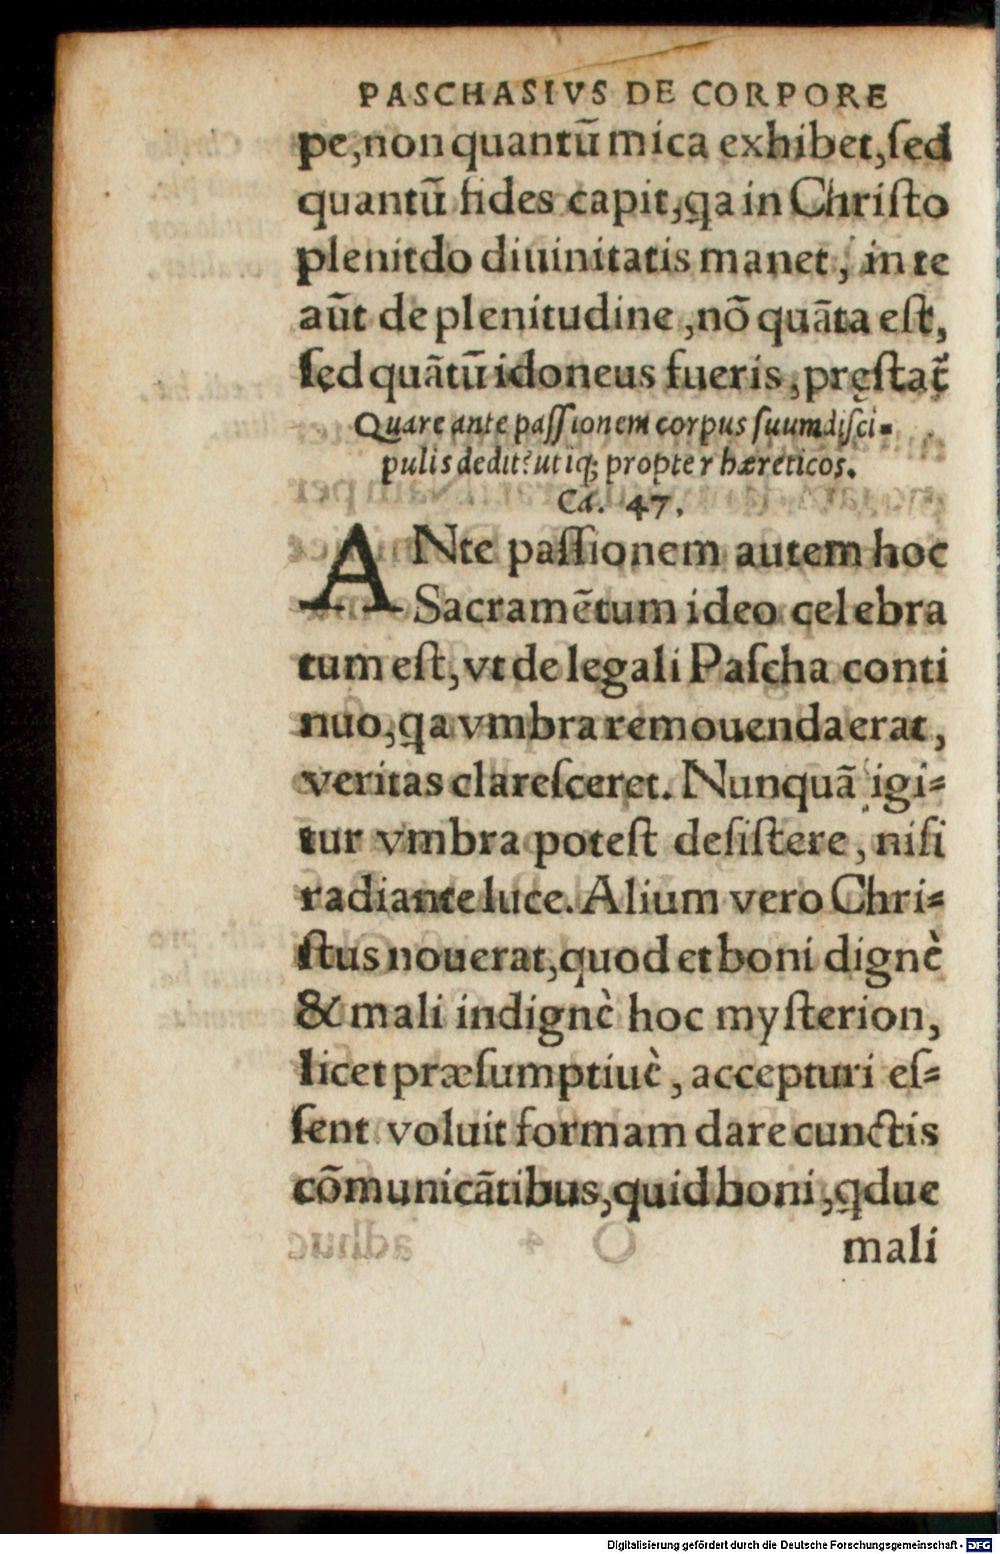 PASCHASIVS DE CORPORE
pe, non quantū mica exhibet, ſed
quantū fides capit, qa in Chriſto
plenitdo diuinitatis manet, in te
aūt de plenitudine, nō quāta eſt,
ſed quātū idoneus fueris, pręſtat̃
Quare ante paſſionem corpus ſuum diſci-
pulis dedit: utiq; propter hæreticos.
Ca. 47.
ANte paſſionem autem hoc
Sacramētum ideo celebra
tum eſt, vt de legali Paſcha conti
nuo, qa vmbra remouenda erat,
veritas clareſceret. Nunquā igi-
tur vmbra poteſt deſiſtere, niſi
radiante luce. Alium vero Chri-
ſtus nouerat, quod et boni dignè
& mali indignè hoc myſterion,
licet præſumptiuè, accepturi eſ-
ſent voluit formam dare cunctis
cōmunicātibus, quid boni, qdue
mali
Digitalisierung gefördert durch die Deutsche Forschungsgemeinschaft - DFG